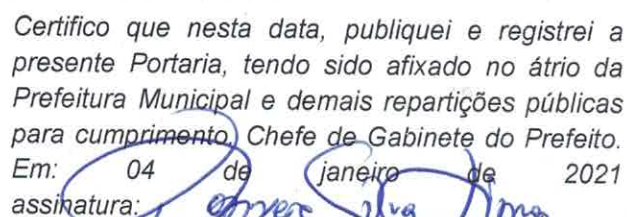 Certifico que nesta data, publiquei e registrei a
presente Portaria, tendo sido afixado no átrio da
Prefeitura Municipal e demais repartições públicas
para cumprimento, Chefe de Gabinete do Prefeito.
Em: 04 de janeiro de 2021
assinatura: Silva